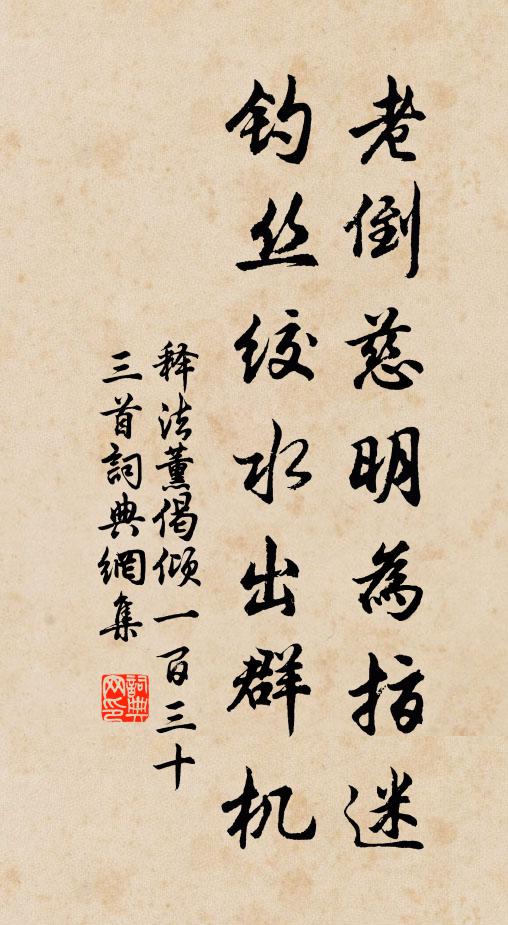 老倒慈明為指迷
钓丝绞水出群机
释法薰偈倾一百三十
三首詞典網集
詞典
网印